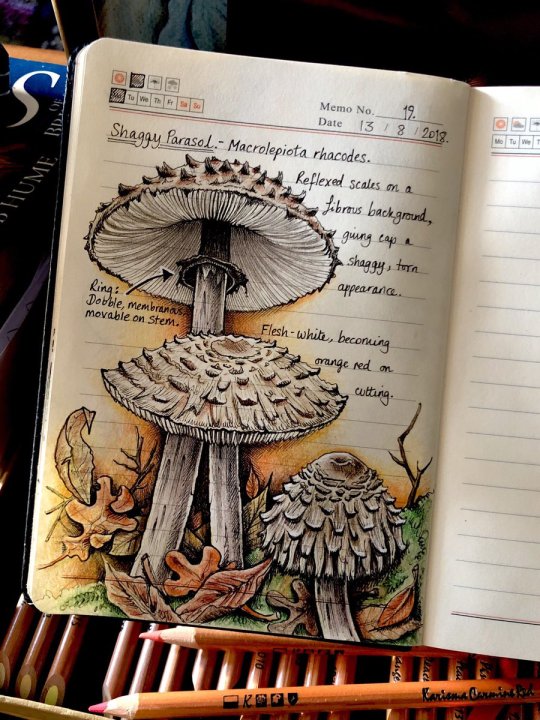 S
B HUME
Memo No. 19.
Mo Tu We Th Fr Sa Su
Date 13 / 8 / 2018.
Mo Tu We Th
Shaggy Parasol. - Macrolepiota rhacodes.
Reflexed scales on a
fibrous background,
giving cap a
shaggy, torn
appearance.
Ring:
Dobble, membranous,
movable on stem.
Flesh - white, becoming
orange red on
cutting.
Karisma Carmine Red